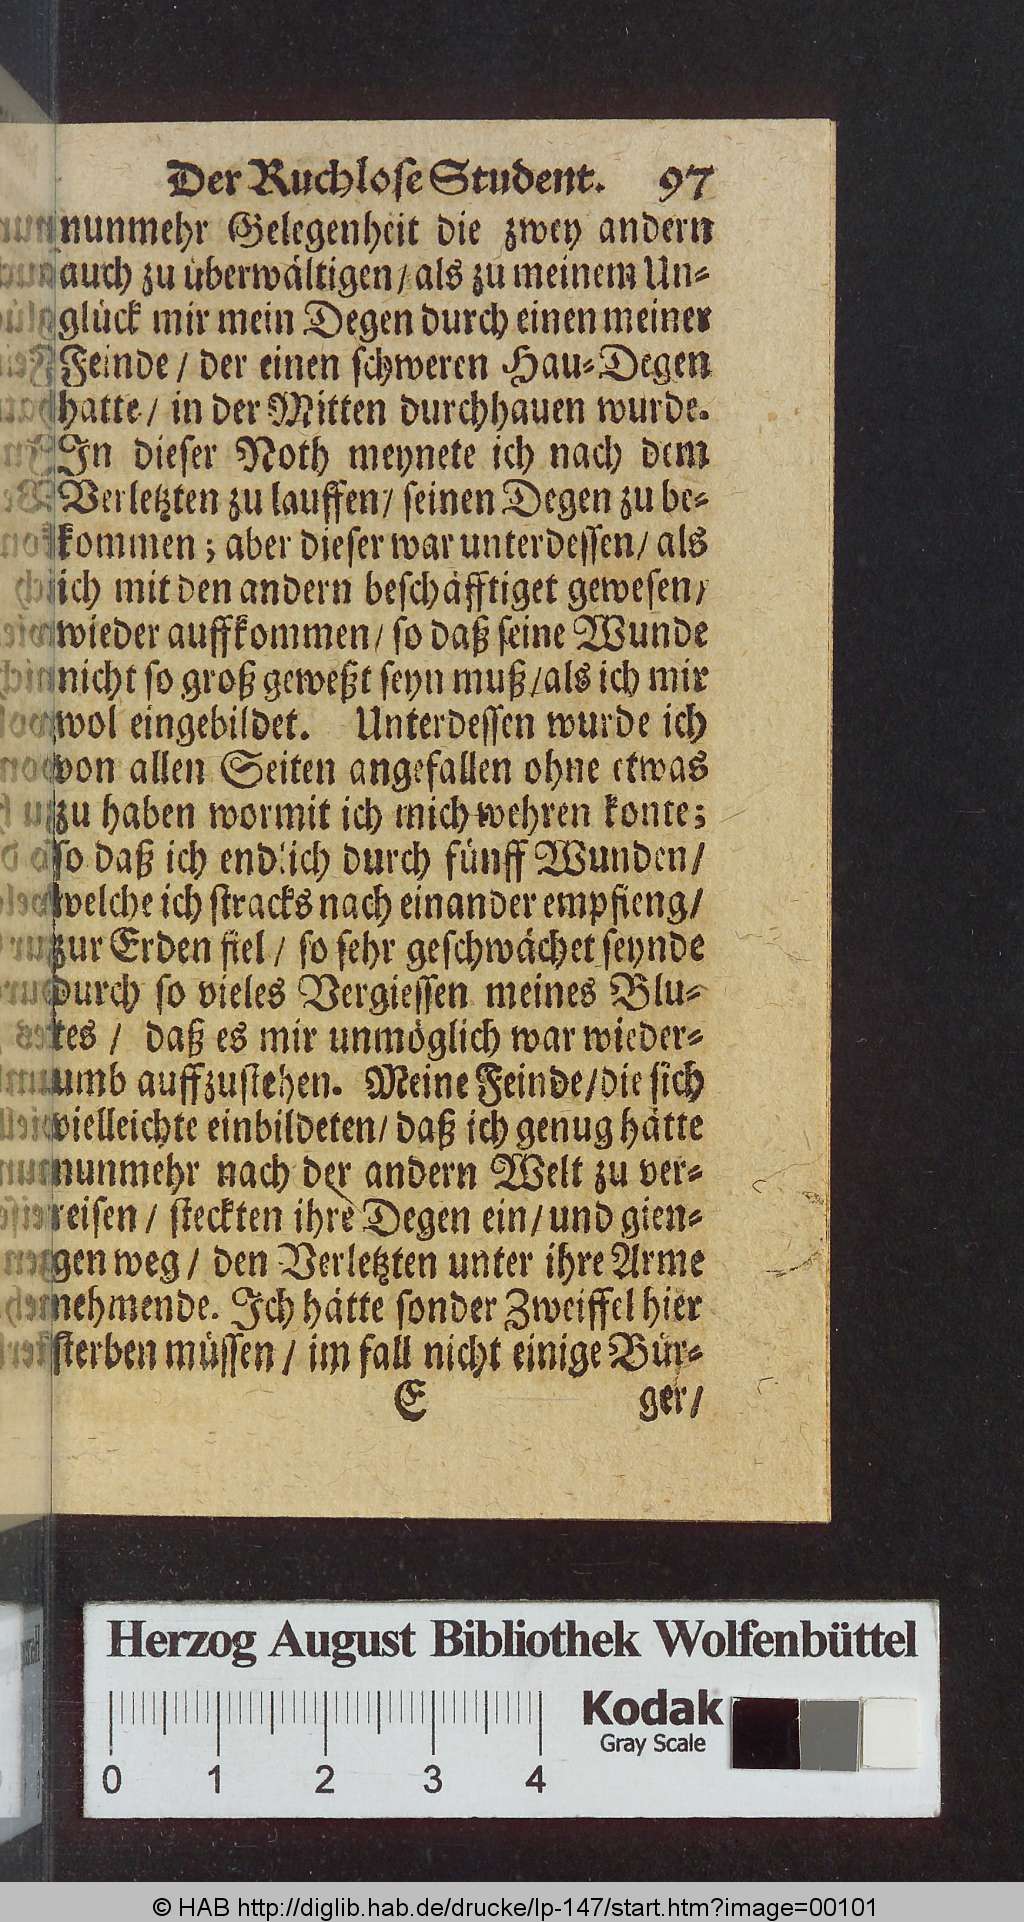 Der Ruchlose Student. 97
nunmehr Gelegenheit die zwey andern
auch zu überwältigen / als zu meinem Un-
glück mir mein Degen durch einen meiner
Feinde / der einen schweren Hau-Degen
hatte / in der Mitten durchhauen wurde.
In dieser Noth meynete ich nach dem
Verletzten zu lauffen / seinen Degen zu be-
kommen ; aber dieser war unterdessen / als
ich mit den andern beschäfftiget gewesen /
wieder auffkommen / so daß seine Wunde
nicht so groß geweßt seyn muß / als ich mir
wol eingebildet. Unterdessen wurde ich
von allen Seiten angefallen ohne etwas
zu haben wormit ich mich wehren konte ;
so daß ich endlich durch fünff Wunden /
welche ich stracks nach einander empfieng /
zur Erden fiel / so sehr geschwächet seynde
durch so vieles Vergiessen meines Blu-
tes / daß es mir unmöglich war wieder-
umb auffzustehen. Meine Feinde / die sich
vielleichte einbildeten / daß ich genug hätte
nunmehr nach der andern Welt zu ver-
reisen / steckten ihre Degen ein / und gien-
gen weg / den Verletzten unter ihre Arme
nehmende. Ich hätte sonder Zweiffel hier
sterben müssen / im fall nicht einige Bür-
E ger /
Herzog August Bibliothek Wolfenbüttel
Kodak
Gray Scale
0 1 2 3 4
© HAB http://diglib.hab.de/drucke/lp-147/start.htm?image=00101